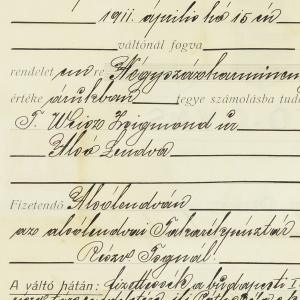 1911. április hó 15 én
váltónál fogva
rendelet en re Négyszázharminc
értéke árukban tegye számolásba tud
T. Weisz Zsigmond ur
Alsó Lendva
Fizetendő Alsólendván
az alsólendvai Takarékpénztár
Részv. Társ.nál.
A váltó hátán: fizettessék a budapesti